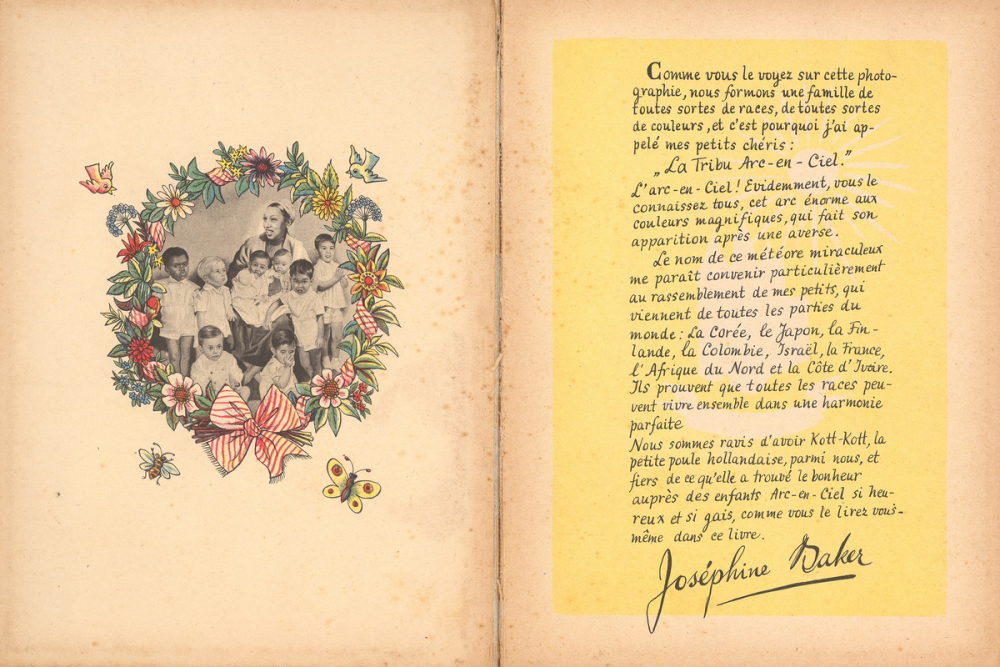 Comme vous le voyez sur cette photo-
graphie, nous formons une famille de
toutes sortes de races, de toutes sortes
de couleurs, et c'est pourquoi j'ai ap-
pelé mes petits chéris :
„La Tribu Arc-en-Ciel."
L'arc-en-Ciel ! Evidemment, vous le
connaissez tous, cet arc énorme aux
couleurs magnifiques, qui fait son
apparition après une averse.
Le nom de ce météore miraculeux
me paraît convenir particulièrement
au rassemblement de mes petits, qui
viennent de toutes les parties du
monde : La Corée, le Japon, la Fin-
lande, la Colombie, Israël, la France,
l'Afrique du Nord et la Côte d'Ivoire.
Ils prouvent que toutes les races peu-
vent vivre ensemble dans une harmonie
parfaite
Nous sommes ravis d'avoir Kott-Kott, la
petite poule hollandaise, parmi nous, et
fiers de ce qu'elle a trouvé le bonheur
auprès des enfants Arc-en-Ciel si heu-
reux et si gais, comme vous le lirez vous-
même dans ce livre.
Joséphine Baker